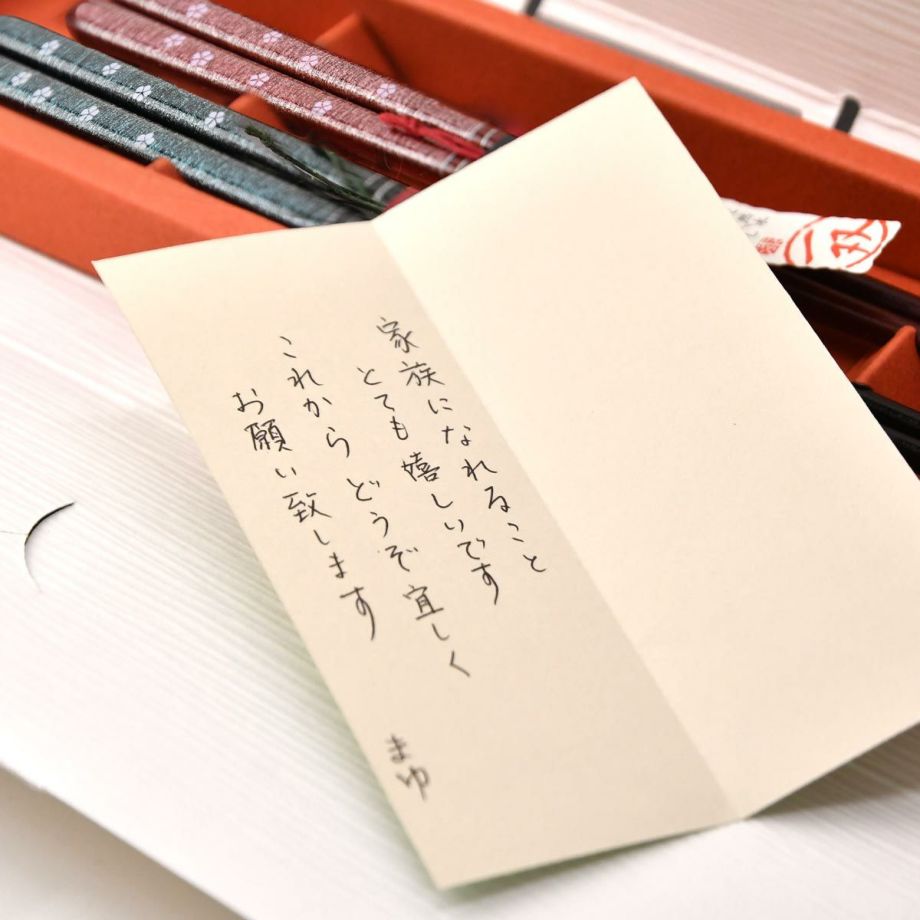 家族になれること
とても嬉しいです
これからどうぞ宜しく
お願い致します
まゆ